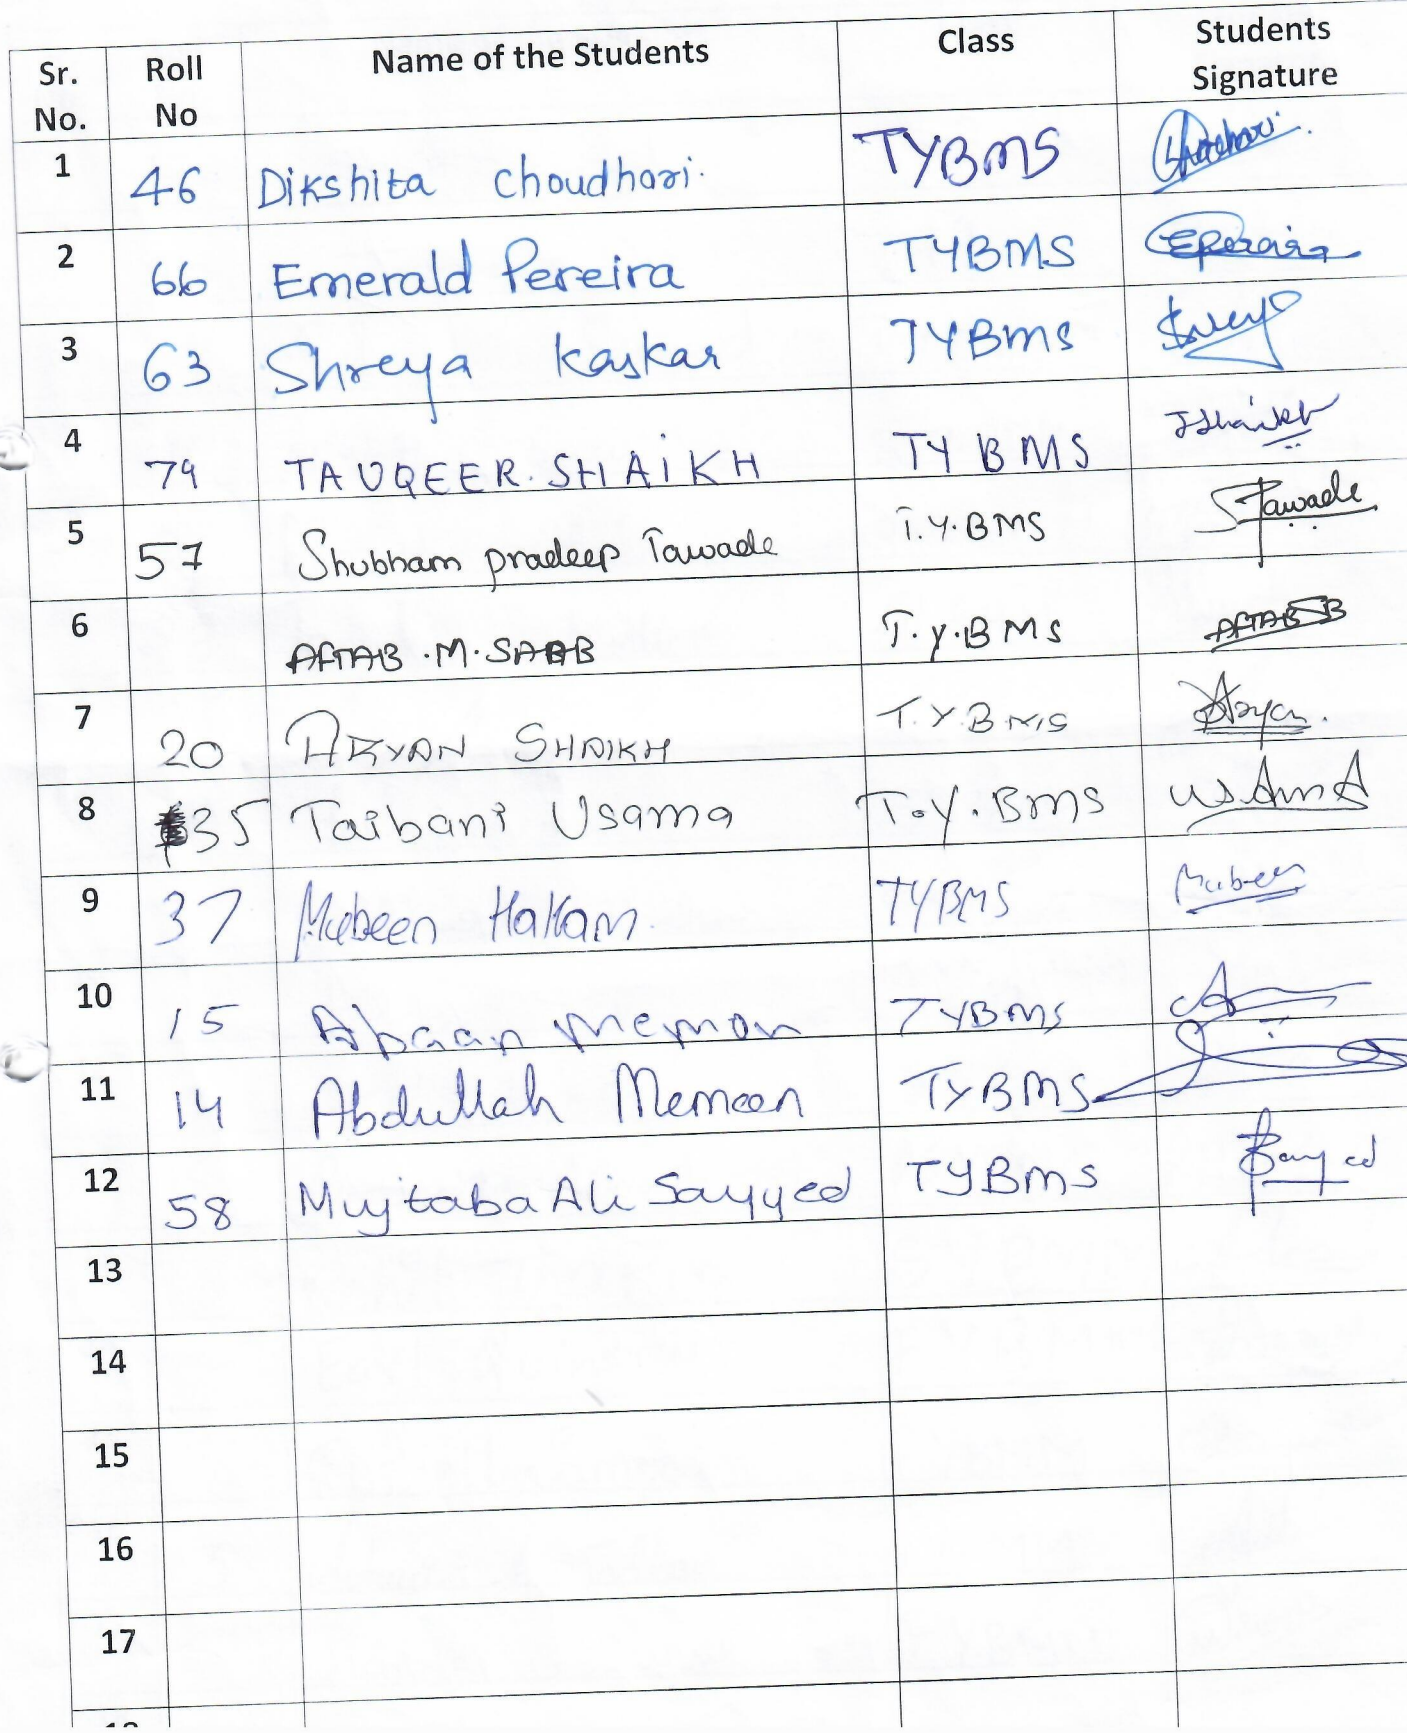 Sr. No. Roll No Name of the Students Class Students Signature
1 46 Dikshita Choudhari. TYBMS
2 66 Emerald Pereira TYBMS EPereira
3 63 Shreya Kaskar TYBMS
4 79 TAUQEER. SHAIKH TY BMS TShaikh
5 57 Shubham pradeep Tawade T.Y.BMS STawade
6 AFTAB .M. T.Y.BMS AFTAB
7 20 ARYAN SHAIKH T.Y.BMS Aryan.
8 35 Taibani Usama T.Y.BMS USAMA
9 37 Mubeen TYBMS Mubeen
10 15 Abaan Memon TYBMS
11 14 Abdullah Memon TYBMS
12 58 Mujtaba Ali Sayyed TYBMS Sayyed
13
14
15
16
17